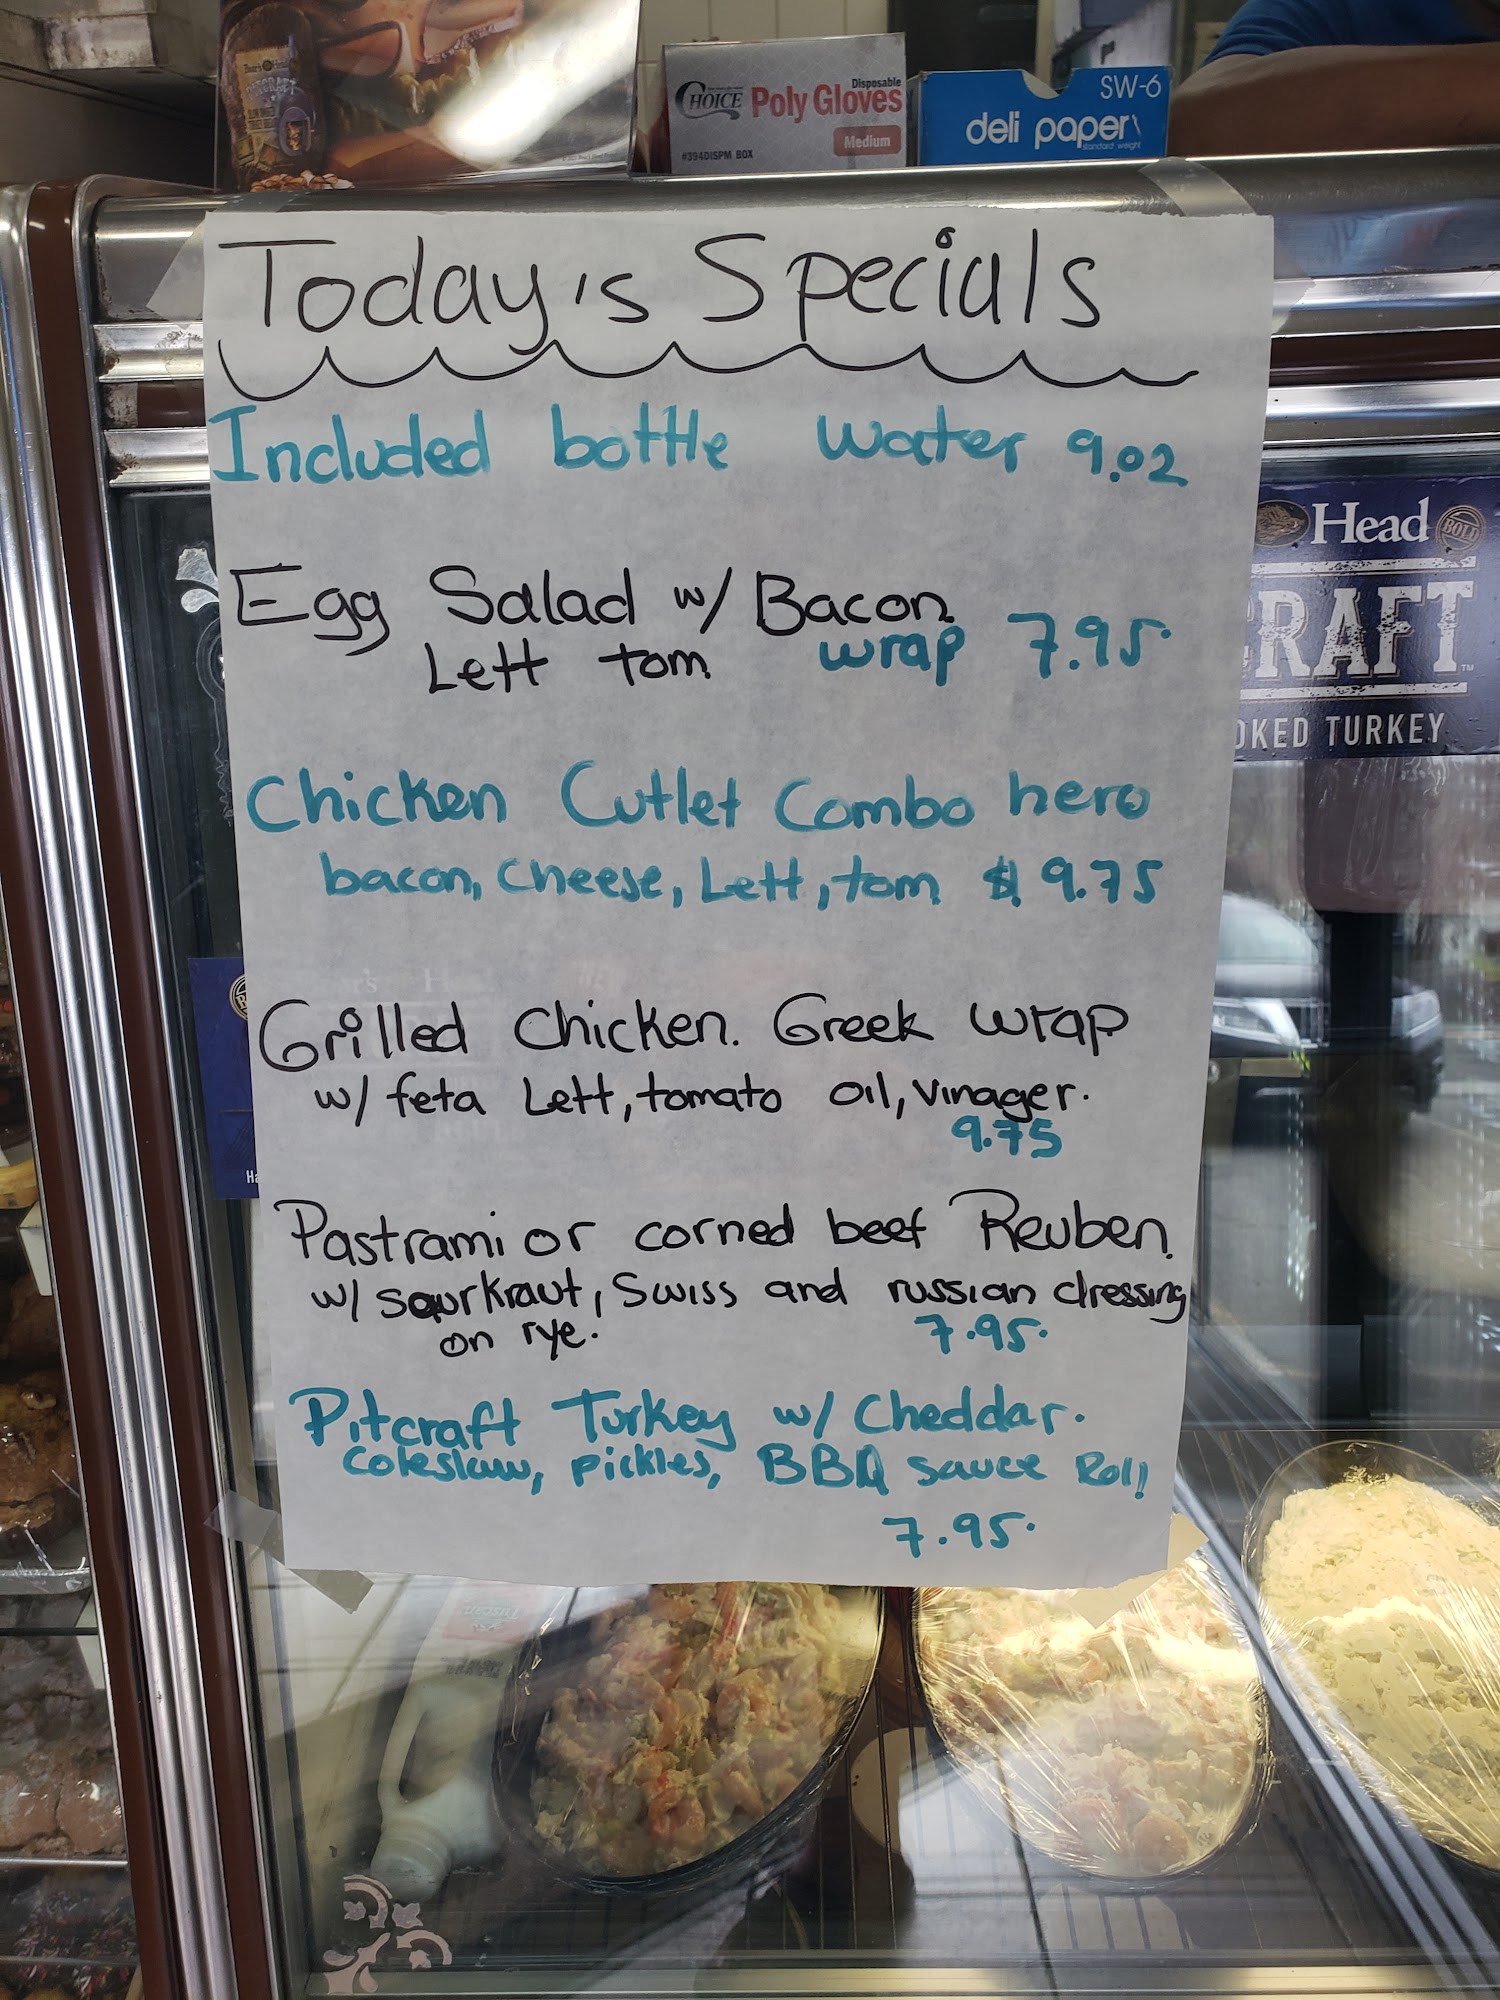 CHOICE
Disposable
Poly Gloves
Medium
#394DISPM BOX
SW-6
deli paper
standard weight
Today's Specials
Included bottle water 9.02
Egg Salad w/ Bacon
Lett tom wrap 7.95.
Chicken Cutlet Combo hero
bacon, cheese, Lett, tom $ 9.75
Grilled Chicken. Greek wrap
w/ feta Lett, tomato oil, vinager.
9.75
Pastrami or corned beef Reuben.
w/ saurkraut, Swiss and russian dressing
on rye. 7.95.
Pitcraft Turkey w/ Cheddar.
Coleslaw, pickles, BBQ sauce Roll
7.95.
Head
BOLD
CRAFT
OKED TURKEY